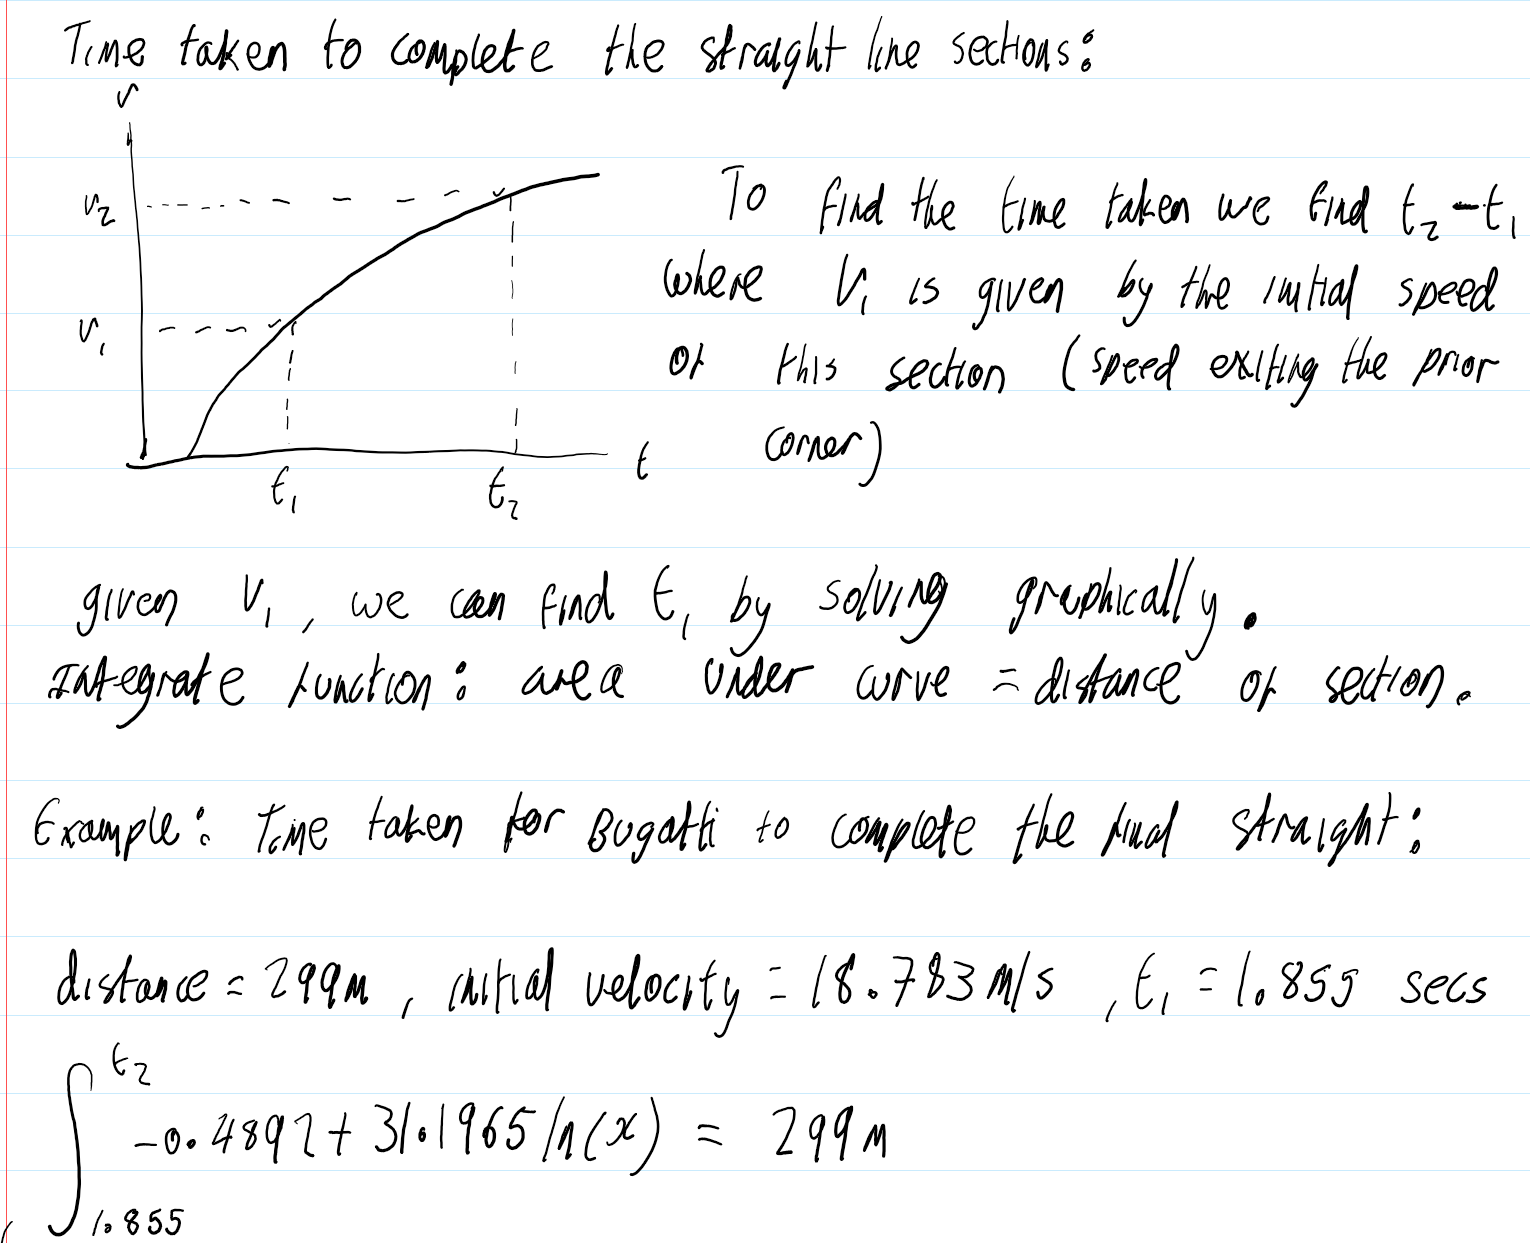 Time taken to complete the straight line sections:
v
v2
v1
t1
t2
t
To find the time taken we find t2 - t1
where V1 is given by the initial speed
of this section (speed exiting the prior
corner)
given V1, we can find t1 by solving graphically.
Integrate function: area under curve = distance of section.
Example: Time taken for Bugatti to complete the final straight:
distance = 299m, initial velocity = 18.783 m/s, t1 = 1.855 secs
∫ t2
-0.4892 + 31.1965 ln(x) = 299m
1.855